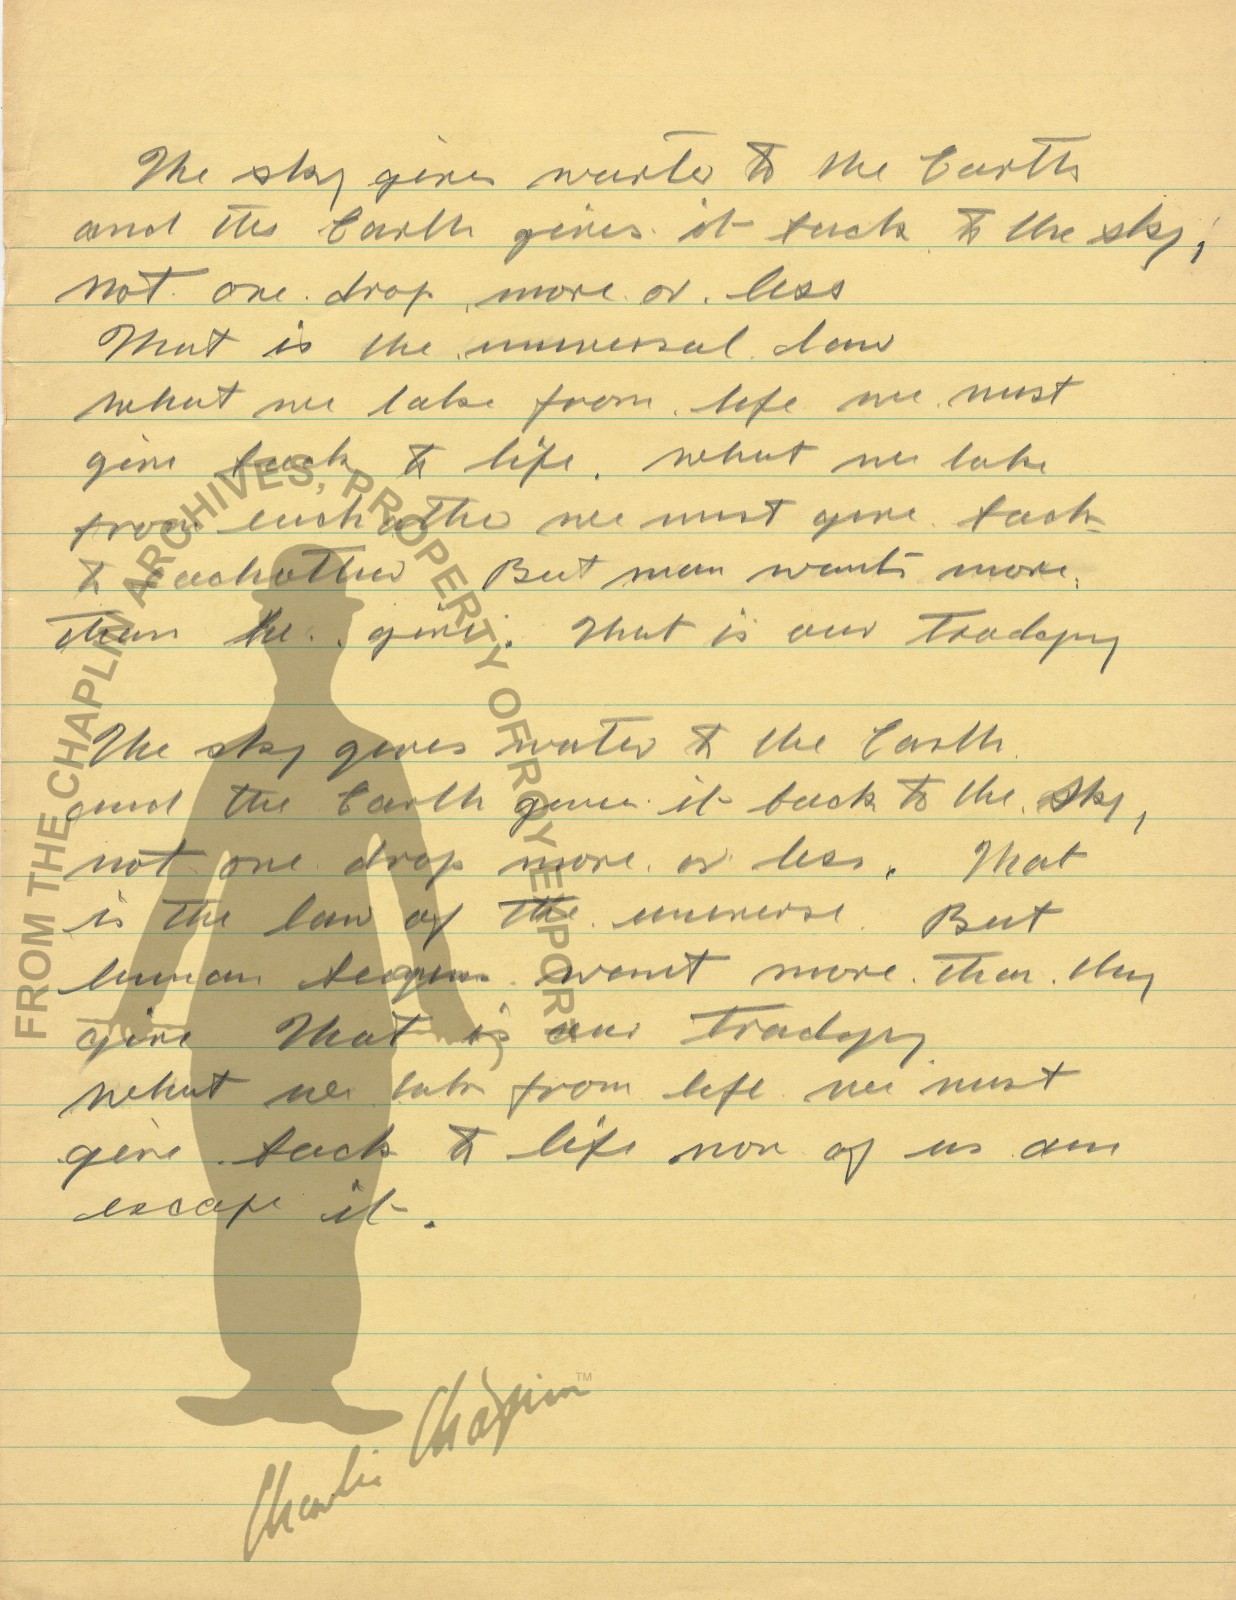 The sky gives warter to the Earth
and the Earth gives it back to the sky,
not one drop more or less
That is the universal law
what we take from life we must
give back to life. what we take
from each other we must give back
to eachother But man wants more
than he give. That is our tradgey
The sky gives water to the Earth
and the Earth gives it back to the sky,
not one drop more or less. That
is the law of the universe But
human beigns want more than they
give That is our tradgey
what we take from life we must
give back to life non of us can
escape it.
FROM THE CHAPLIN ARCHIVES, PROPERTY OF ROY EXPORT
Charlie Chaplin TM